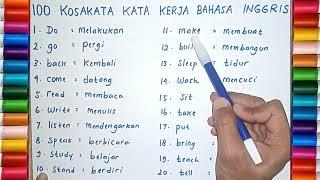 100 KOSAKATA KATA KERJA BAHASA INGGRIS
1. Do = melakukan
2. go = pergi
3. back = Kembali
4. come = datang
5. read = membaca
6. Write = menulis
7. listen = mendengarkan
8. Speak = berbicara
9. Study = belajar
10. Stand = berdiri
11. make = membuat
12. buil = membangun
13. Sleep = tidur
14. Wash = mencuci
15. Sit =
16. take
17. put
18. bring
19. teach
20. tell